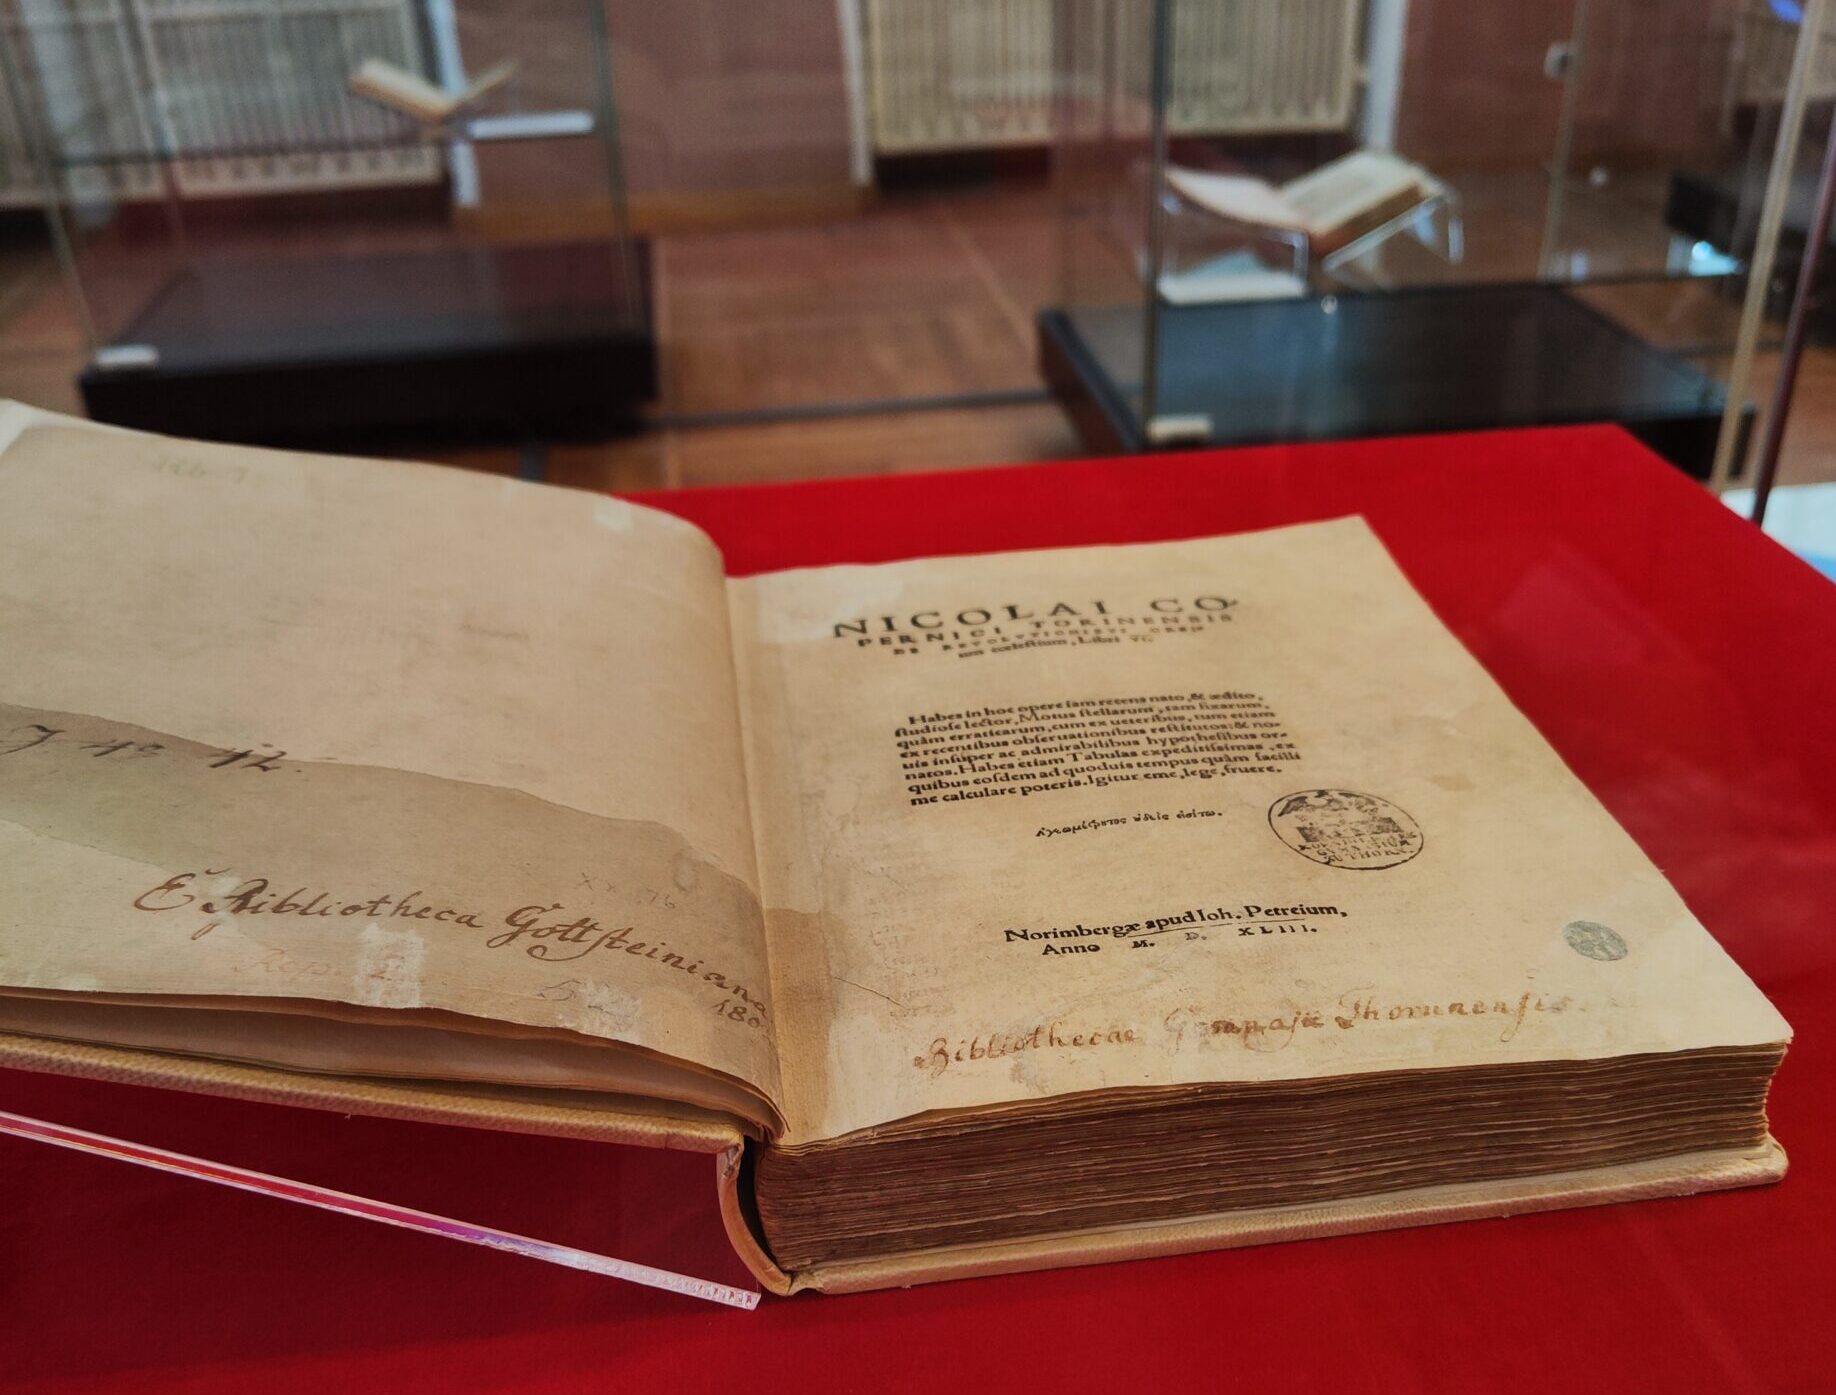 4° 42.
E Bibliotheca Gottſteiniana
180
NICOLAI CO
PERNICI TORINENSIS
DE REVOLVTIONIBVS ORBI⸗
um cœleſtium, Libri VI.
Habes in hoc opere iam recens nato, & ædito,
ſtudioſe lector, Motus ſtellarum, tam fixarum,
quàm erraticarum, cum ex ueteribus, tum etiam
ex recentibus obſeruationibus reſtitutos: & no⸗
uis inſuper ac admirabilibus hypotheſibus or⸗
natos. Habes etiam Tabulas expeditiſsimas, ex
quibus eoſdem ad quoduis tempus quàm facilli
me calculare poteris. Igitur eme, lege, fruere.
Ἀγεωμέτρητος οὐδεὶς εἰσίτω.
Norimbergæ apud Ioh. Petreium,
Anno M. D. XLIII.
Bibliothecae Gymnaſii Thorunenſis.